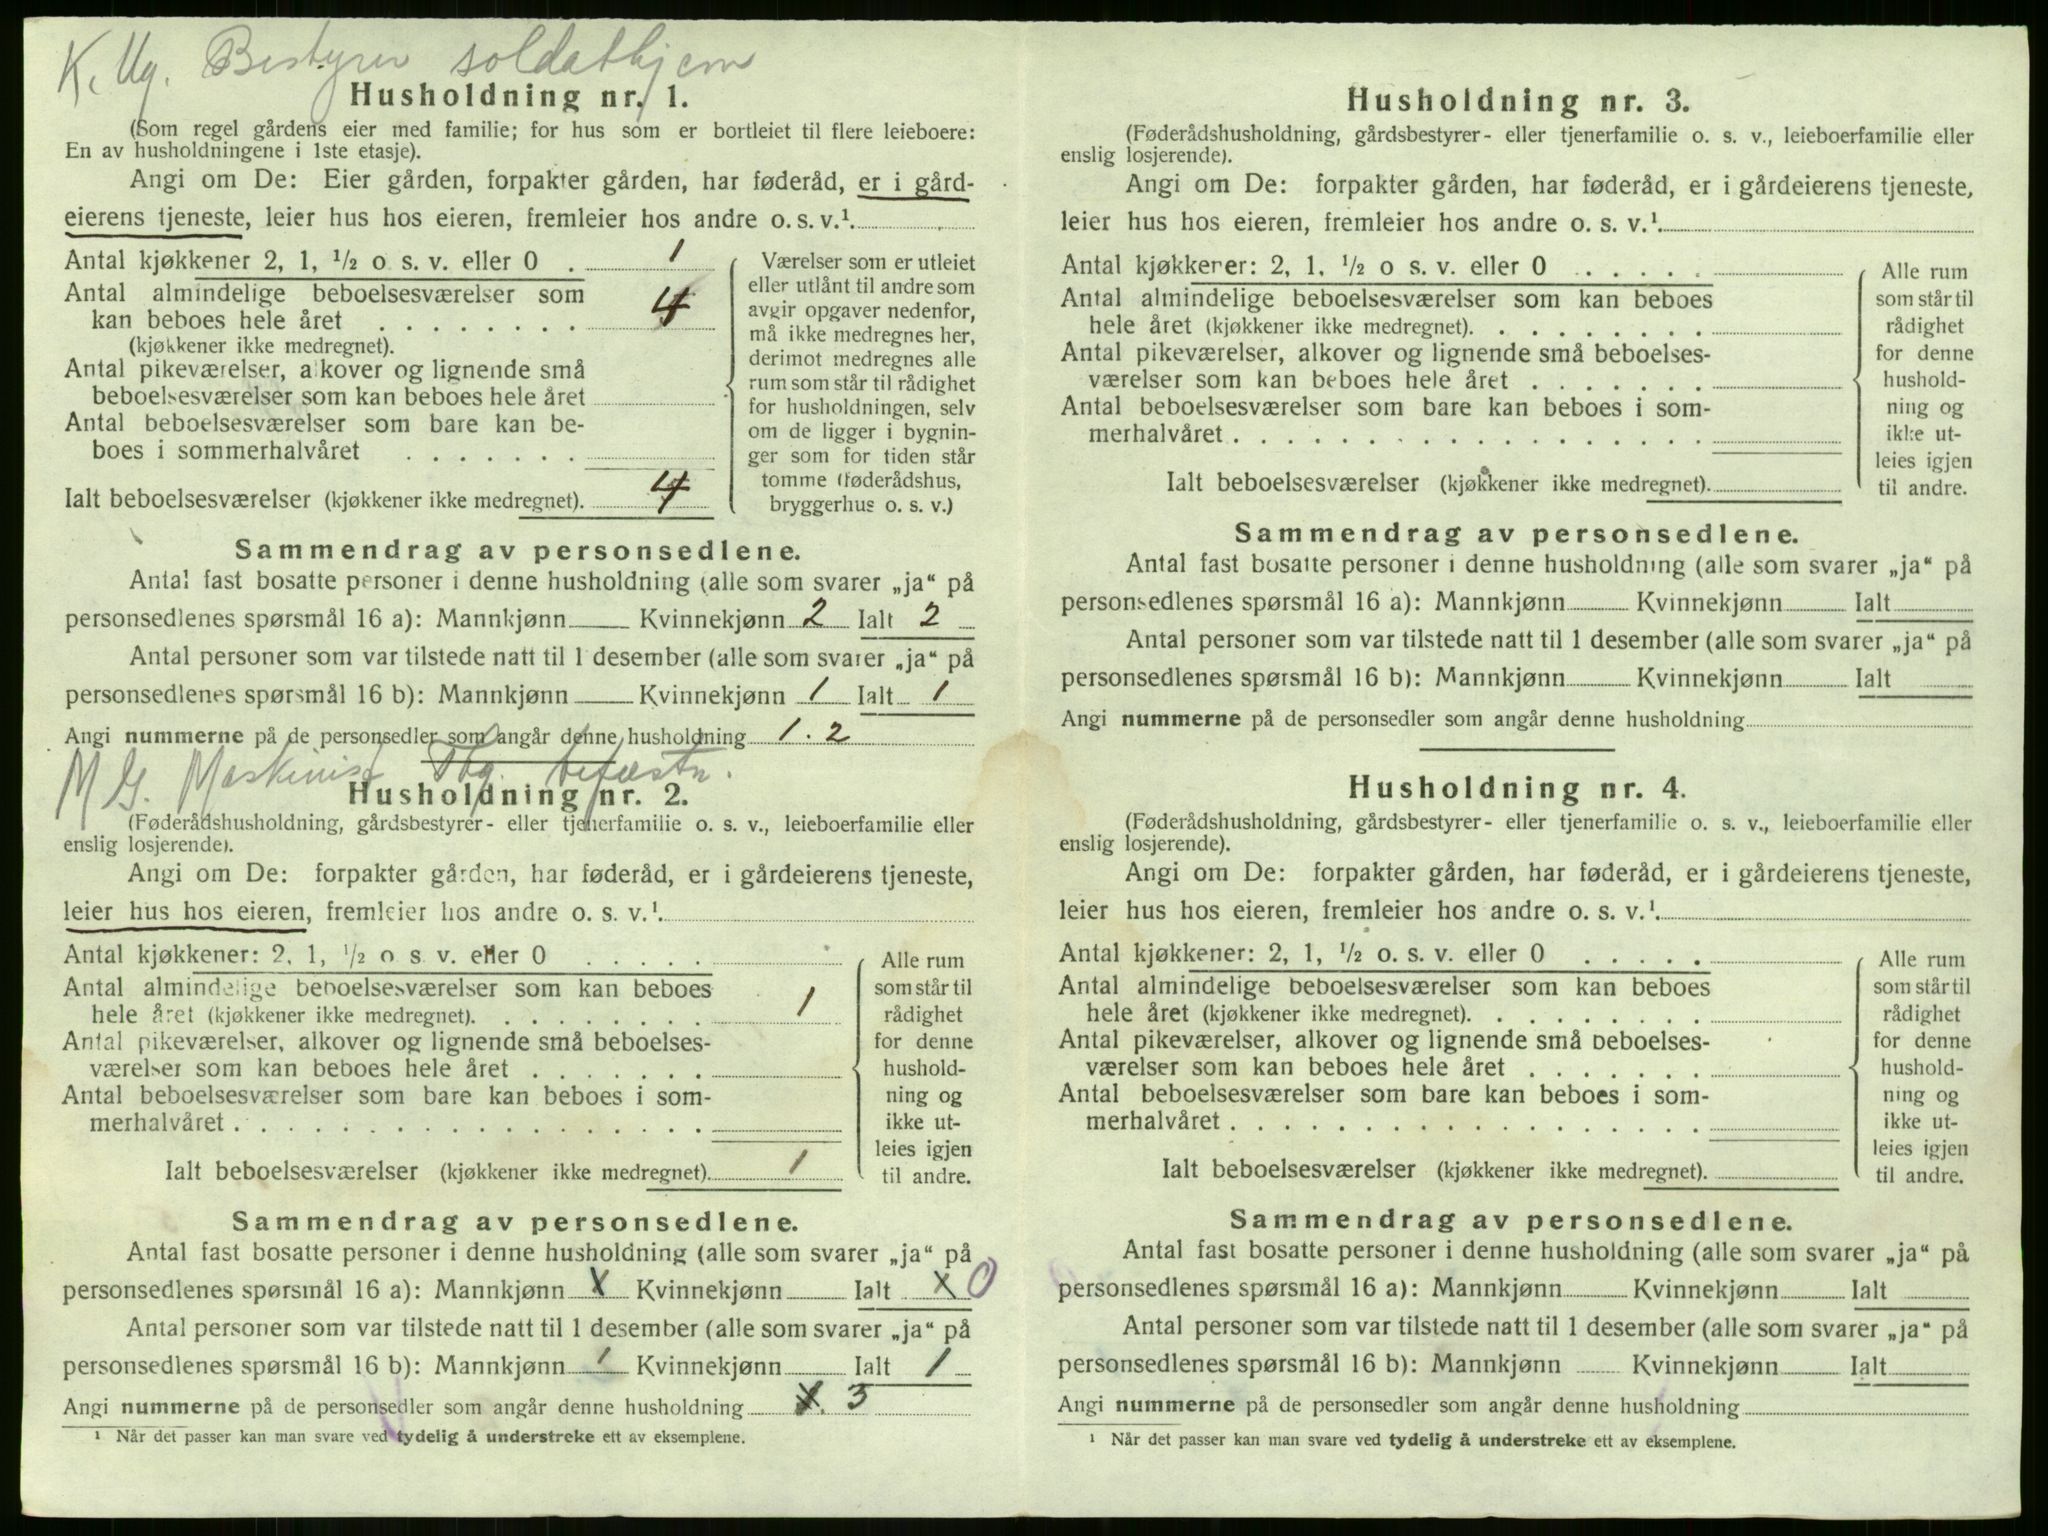 K. Ug. Bestyrer soldathjem
Husholdning nr. 1.
(Som regel gårdens eier med familie; for hus som er bortleiet til flere leieboere:
En av husholdningene i 1ste etasje).
Angi om De: Eier gården, forpakter gården, har føderåd, er i gård-
eierens tjeneste, leier hus hos eieren, fremleier hos andre o. s. v.¹
Antal kjøkkener 2, 1, ½ o s. v. eller 0 . 1
Antal almindelige beboelsesværelser som
kan beboes hele året . . . . . . . . 4
(kjøkkener ikke medregnet).
Antal pikeværelser, alkover og lignende små
beboelsesværelser som kan beboes hele året
Antal beboelsesværelser som bare kan be-
boes i sommerhalvåret . . . . . . .
Ialt beboelsesværelser (kjøkkener ikke medregnet). 4
Værelser som er utleiet
eller utlånt til andre som
avgir opgaver nedenfor,
må ikke medregnes her,
derimot medregnes alle
rum som står til rådighet
for husholdningen, selv
om de ligger i bygnin-
ger som for tiden står
tomme (føderådshus,
bryggerhus o. s. v.)
Sammendrag av personsedlene.
Antal fast bosatte personer i denne husholdning (alle som svarer „ja“ på
personsedlenes spørsmål 16 a): Mannkjønn Kvinnekjønn 2 Ialt 2
Antal personer som var tilstede natt til 1 desember (alle som svarer „ja“ på
personsedlenes spørsmål 16 b): Mannkjønn Kvinnekjønn 1 Ialt 1
Angi nummerne på de personsedler som angår denne husholdning 1. 2
M G. Maskinist Obg. befæstn.
Husholdning nr. 2.
(Føderådshusholdning, gårdsbestyrer- eller tjenerfamilie o. s. v., leieboerfamilie eller
enslig losjerende).
Angi om De: forpakter gården, har føderåd, er i gårdeierens tjeneste,
leier hus hos eieren, fremleier hos andre o. s. v.¹
Antal kjøkkener: 2, 1, ½ o s. v. eller 0 . . . . .
Antal almindelige beboelsesværelser som kan beboes
hele året (kjøkkener ikke medregnet). . . . . . . . . 1
Antal pikeværelser, alkover og lignende små beboelses-
værelser som kan beboes hele året . . . . . . .
Antal beboelsesværelser som bare kan beboes i som-
merhalvåret . . . . . . . . . . . . . . . . . .
Ialt beboelsesværelser (kjøkkener ikke medregnet). 1
Alle rum
som står til
rådighet
for denne
hushold-
ning og
ikke ut-
leies igjen
til andre.
Sammendrag av personsedlene.
Antal fast bosatte personer i denne husholdning (alle som svarer „ja“ på
personsedlenes spørsmål 16 a): Mannkjønn x Kvinnekjønn Ialt x 0
Antal personer som var tilstede natt til 1 desember (alle som svarer „ja“ på
personsedlenes spørsmål 16 b): Mannkjønn 1 Kvinnekjønn Ialt 1
Angi nummerne på de personsedler som angår denne husholdning 3
¹ Når det passer kan man svare ved tydelig å understreke ett av eksemplene.
Husholdning nr. 3.
(Føderådshusholdning, gårdsbestyrer- eller tjenerfamilie o. s. v., leieboerfamilie eller
enslig losjerende).
Angi om De: forpakter gården, har føderåd, er i gårdeierens tjeneste,
leier hus hos eieren, fremleier hos andre o. s. v.¹
Antal kjøkkener: 2, 1, ½ o s. v. eller 0 . . . . .
Antal almindelige beboelsesværelser som kan beboes
hele året (kjøkkener ikke medregnet). . . . . . . . .
Antal pikeværelser, alkover og lignende små beboelses-
værelser som kan beboes hele året . . . . . . .
Antal beboelsesværelser som bare kan beboes i som-
merhalvåret . . . . . . . . . . . . . . . . . .
Ialt beboelsesværelser (kjøkkener ikke medregnet).
Alle rum
som står til
rådighet
for denne
hushold-
ning og
ikke ut-
leies igjen
til andre.
Sammendrag av personsedlene.
Antal fast bosatte personer i denne husholdning (alle som svarer „ja“ på
personsedlenes spørsmål 16 a): Mannkjønn Kvinnekjønn Ialt
Antal personer som var tilstede natt til 1 desember (alle som svarer „ja“ på
personsedlenes spørsmål 16 b): Mannkjønn Kvinnekjønn Ialt
Angi nummerne på de personsedler som angår denne husholdning
Husholdning nr. 4.
(Føderådshusholdning, gårdsbestyrer- eller tjenerfamilie o. s. v., leieboerfamilie eller
enslig losjerende).
Angi om De: forpakter gården, har føderåd, er i gårdeierens tjeneste,
leier hus hos eieren, fremleier hos andre o. s. v.¹
Antal kjøkkener: 2, 1, ½ o. s. v. eller 0 . . . . .
Antal almindelige beboelsesværelser som kan beboes
hele året (kjøkkener ikke medregnet). . . . . . . . .
Antal pikeværelser, alkover og lignende små beboelses-
værelser som kan beboes hele året . . . . . . .
Antal beboelsesværelser som bare kan beboes i som-
merhalvåret . . . . . . . . . . . . . . . . . .
Ialt beboelsesværelser (kjøkkener ikke medregnet).
Alle rum
som står til
rådighet
for denne
hushold-
ning og
ikke ut-
leies igjen
til andre.
Sammendrag av personsedlene.
Antal fast bosatte personer i denne husholdning (alle som svarer „ja“ på
personsedlenes spørsmål 16 a): Mannkjønn Kvinnekjønn Ialt
Antal personer som var tilstede natt til 1 desember (alle som svarer „ja“ på
personsedlenes spørsmål 16 b): Mannkjønn Kvinnekjønn Ialt
Angi nummerne på de personsedler som angår denne husholdning
¹ Når det passer kan man svare ved tydelig å understreke ett av eksemplene.